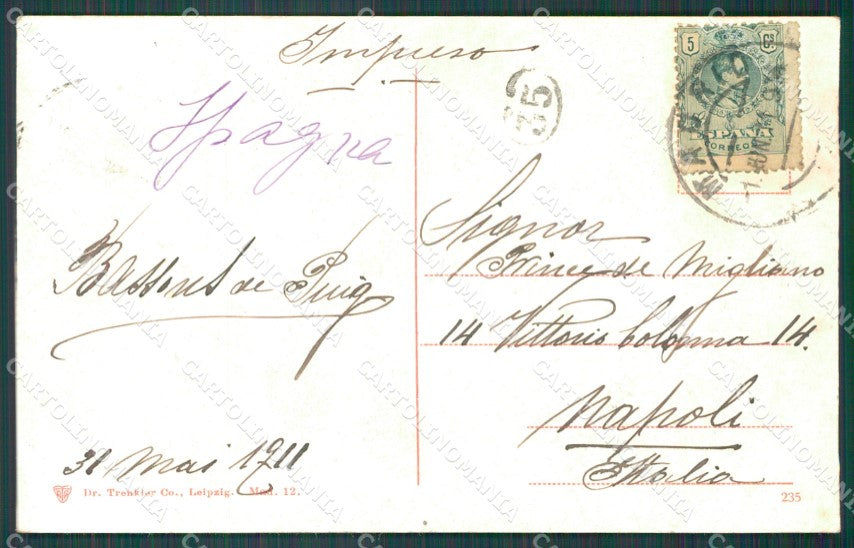 Impreso
Spagna
35
5 Cs
ESPAÑA
CORREOS
Signor
Prince de Migliano
14 Vittoria Colonna 14.
Napoli
Italia
Bassous de Puig
31 Mai 1911
Dr. Trenkler Co., Leipzig. Mod. 12.
235
CARTOLINOMANIA